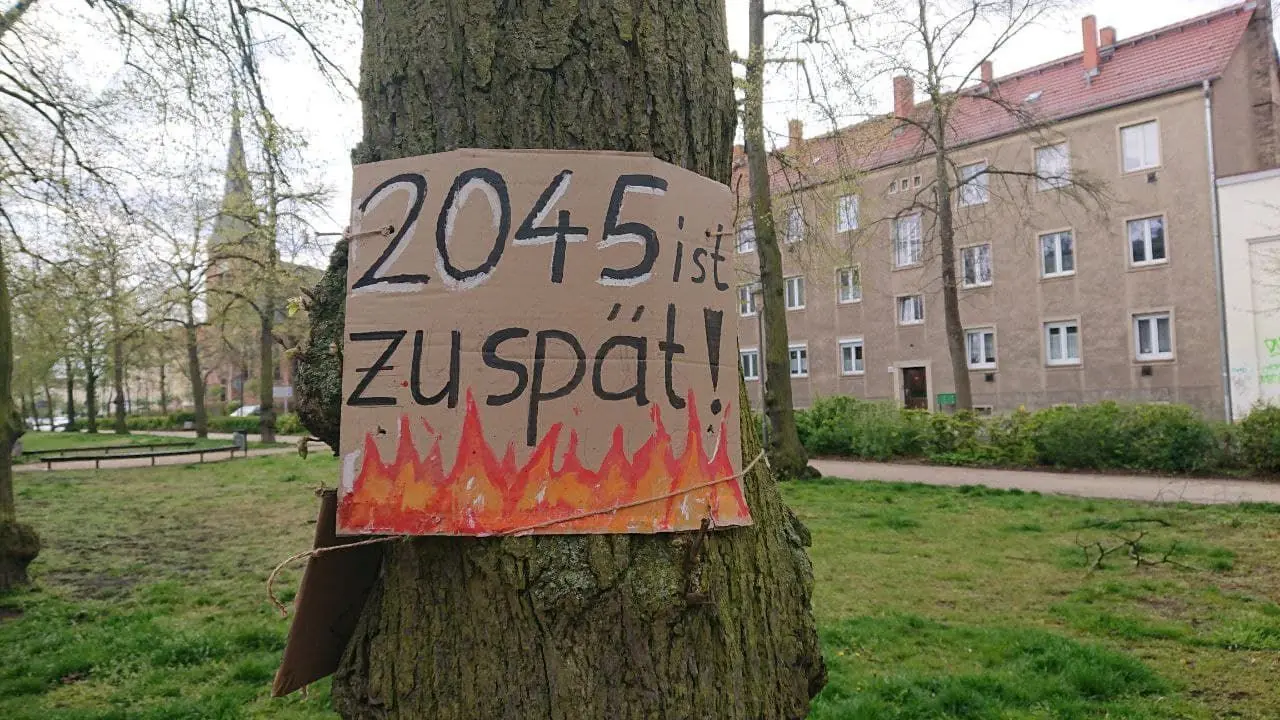 2045 ist
zu spät!